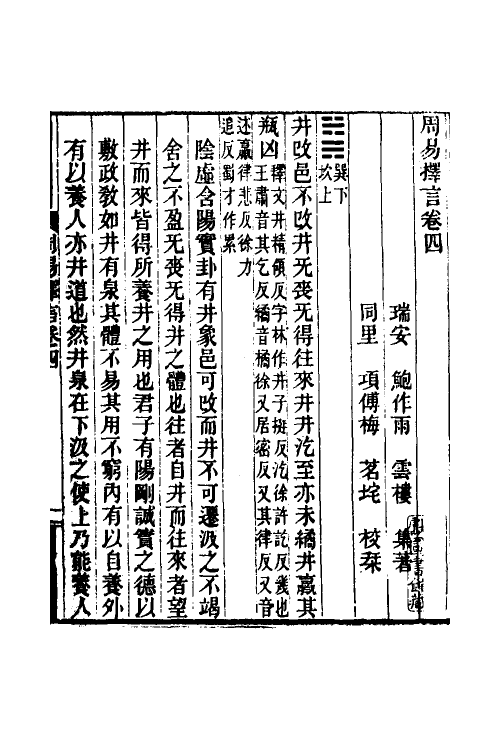 周易擇言卷四
瑞安　鮑作雨　雲樓　集著
同里　項傅梅　茗垞　校栞
䷯巽下坎上
井改邑不改井无喪无得往來井井汔至亦未繘井羸其
瓶凶釋文井精領反字林作丼子挺反汔徐許訖反幾也
王肅音其乞反繘音橘徐又居密反又其律反又音
述羸律悲反徐力
追反蜀才作累
陰虛含陽實卦有井象邑可改而井不可遷汲之不竭
舍之不盈无喪无得井之體也往者自井而往來者望
井而來皆得所養井之用也君子有陽剛誠實之德以
敷政敎如井有泉其體不易其用不窮內有以自養外
有以養人亦井道也然井泉在下汲之使上乃能養人
周易擇言卷四